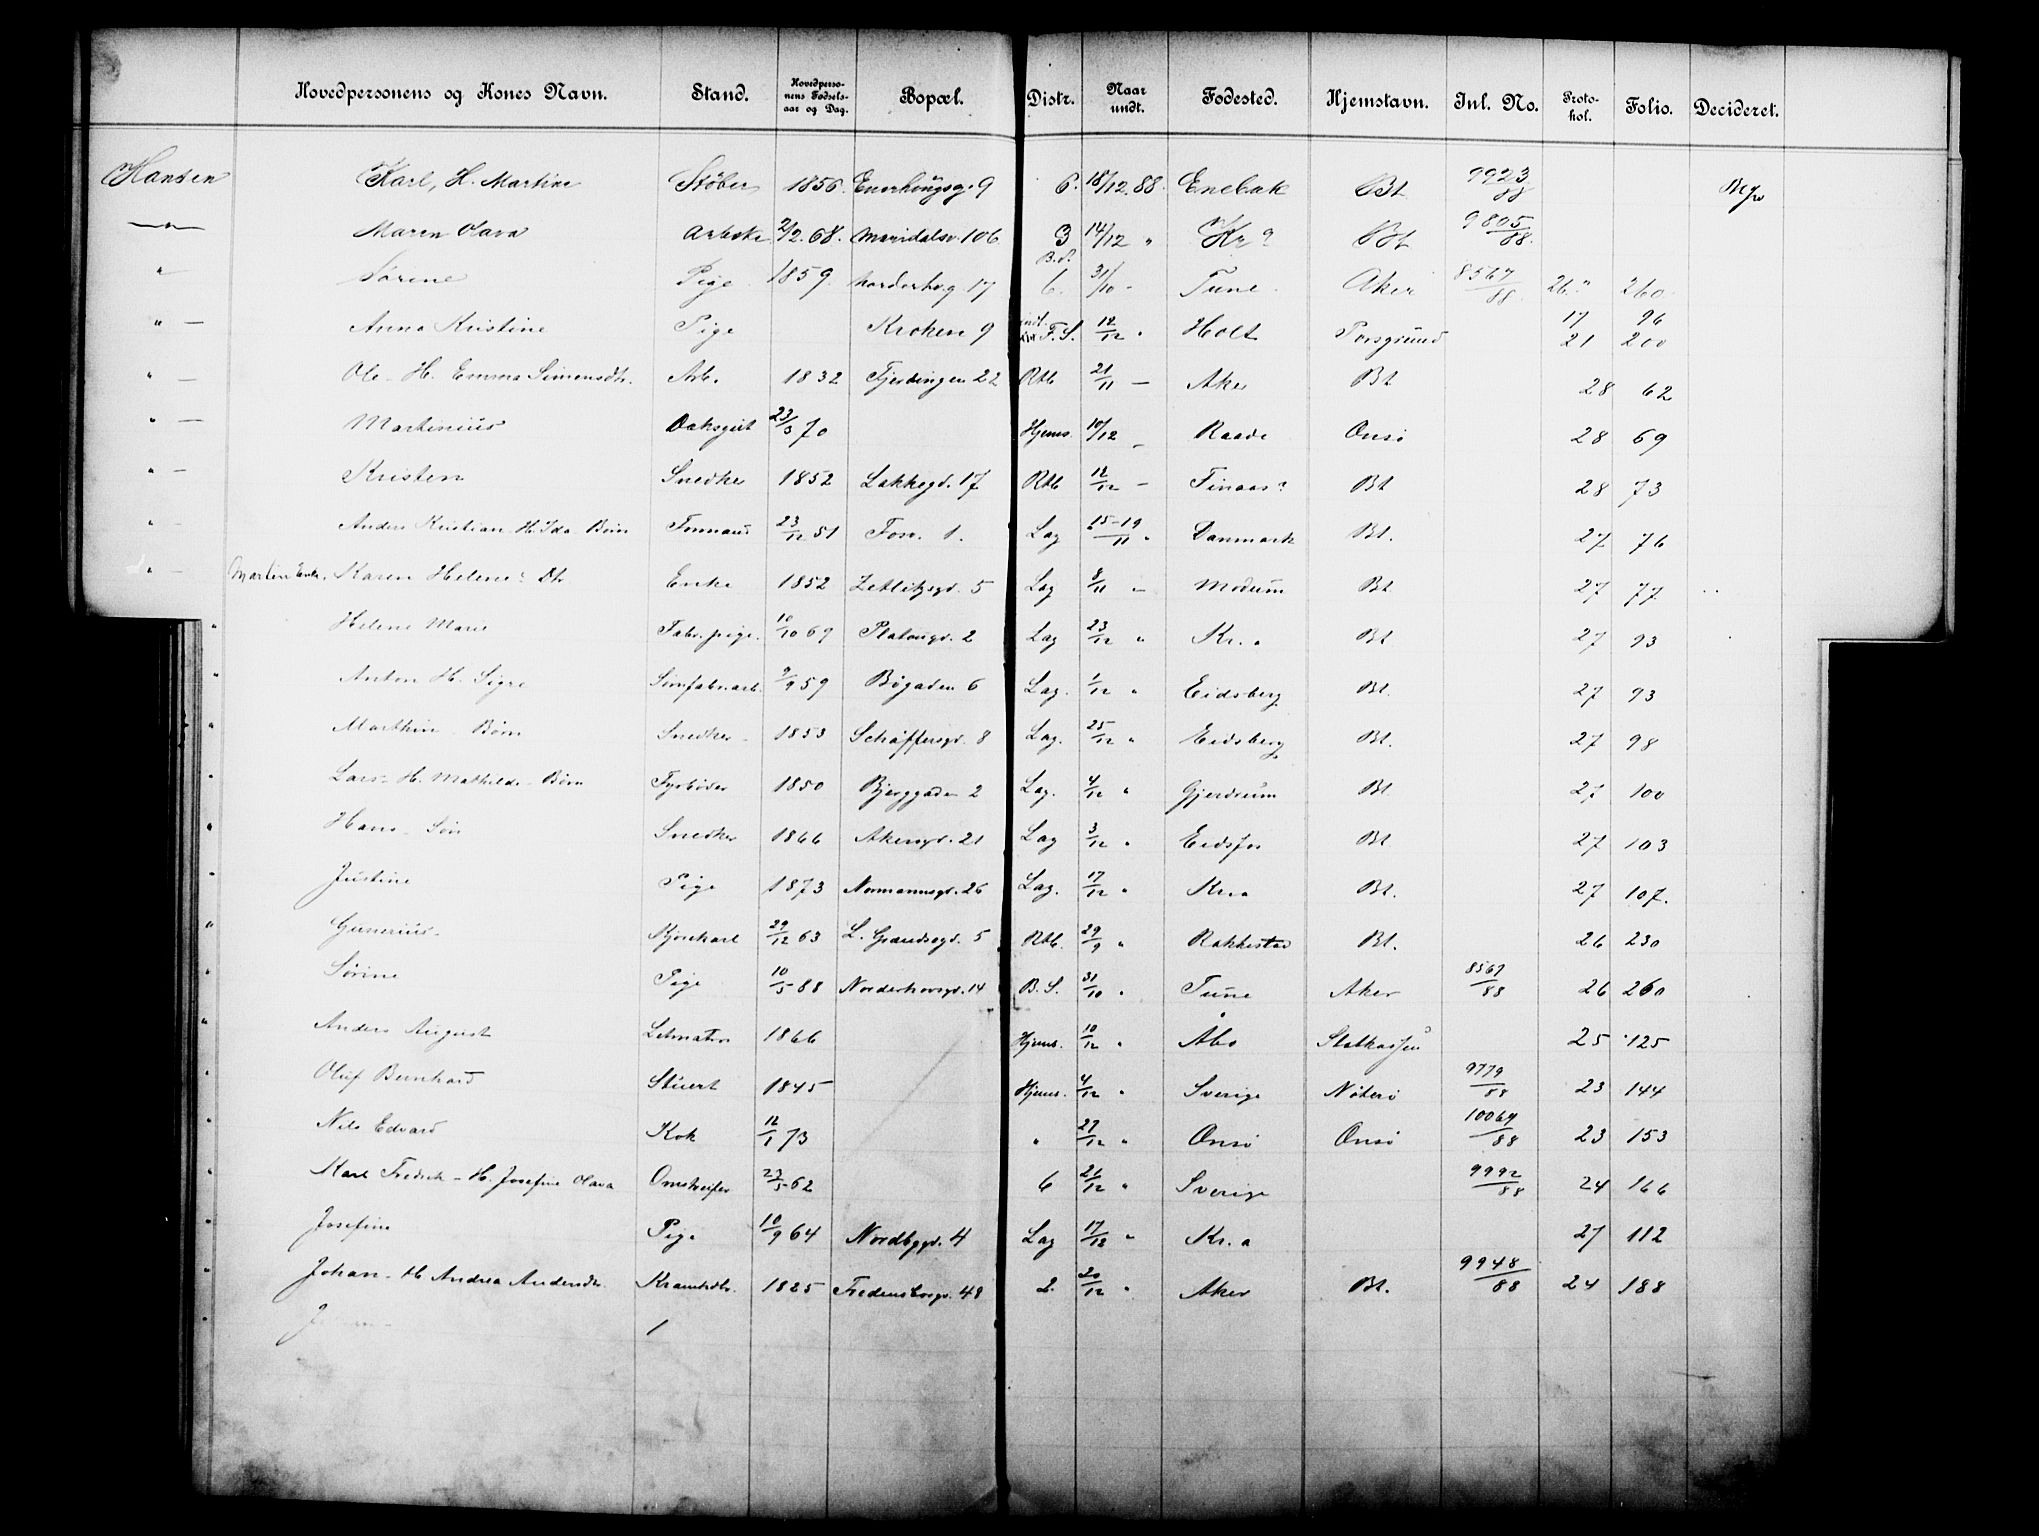 Hovedpersonens og Kones Navn. Stand. Hovedperso-nens Fødsels-aar og Dag. Bopæl. Distr. Naar undt. Fødested. Hjemstavn. Inl. No. Proto-kol. Folio. Decideret.
Hansen Karl, H. Martine Støber 1856. Enerhaugsg. 9 6. 18/12 88. Enebak Bt 9923/88
Maren Olava Arbske 2/2 68. Maridalsv. 106 3 14/12 " Kr a Bt 9805/88.
" Sørene Pige 1859. Norderhvg 17 B.d. 6. 31/10 - Tune Aker 8567/88 26." 260
" — Anna Kristine Pige Kroken 9 F.S. 12/12 " Holt Porsgrund 17 96 21 200
" — Ole - H. Emma Simensdtr. Arb. 1832 Fjerdingen 22 Rtb 21/11 — Aker Bt 28 62
" — Martinius Daksgut 23/3 70 Hjems. 10/12 — Raade Onsø 28 69
" — Kristen Snedker 1852 Lakkegd. 17 Rtb 12/12 — Finaas? Bt 28 73
" - Anders Kristian H. Ida - Børn Tømmand 23/12 51 Foss. 1. Lag 15-19/11 " Danmark Bt. 27 76
" — Martin Enke. Karen Helene Dtr Enke 1852 Zetlitzgd. 5 Lag 8/11 — Modum Bt 27 77
" Helene Marie Fabr.pige. 10/10 69 Platougd. 2 Lag 23/12 " Kr.a Bt 27 93
" Anton H. Sigre 9/9 59 Bøgaden 6 Lag. 1/12 " Eidsberg Bt. 27 93
" Marthin - Børn Snedker - 1853 Schäffersgd. 8 Lag. 25/12 " Eidsberg Bt. 27 98
" Lars - H. Mathilde - Børn Fyrbøder 1850 Bjerggaden 2 Lag. 4/12 " Gjerdrum Bt. 27 100
" Hans - Søn Snedker 1866 Akersgd. 21 Lag 3/12 " Eidsfos Bt 27 103
" Justine Pige 1873 Normannsgd. 26 Lag. 17/12 " Kr.a Bt. 27 107.
" Gunerius - Kjørekarl 29/12 63 L. Grændsegd. 5 Rtb. 29/9 " Rakkestad Bt. 26 230
" Sørine Pige 10/5 88 Norderhovsgd. 14 B.S. 31/10 " Tune Aker 8567/88 26 260
" Anders August Letmatros 1866 Hjems. 10/12 " Åbo Statkassen 25 125
" Oluf Bernhard Stuert 1845 Hjems. 4/12 " Sverige Nøterø 9779/88 23 144
" Nils Edvard Kok 12/1 73 " 27/12 " Onsø Onsø 10064/88 23 153
" Karl Fredrik - H. Josefine Olava Omstreifer 23/5 62 6 21/12 " Sverige 9992/88 24 166
" Josefine Pige 10/9 64 Nordbygd. 4 Lag 17/12 " Kr.a 27 112
" Johan - H Andrea Andersdtr. 1825 Fredensborgv. 48 2. 20/12 " Aker Bt. 9948/88 24 188